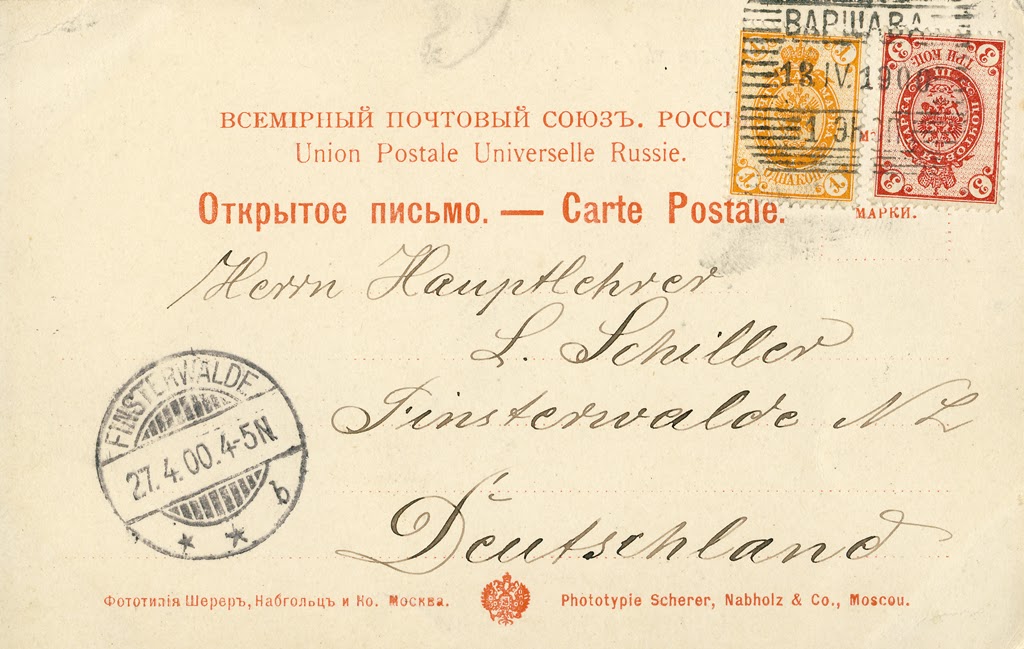 ВАРШАВА
18 IV. 1900
ВСЕМІРНЫЙ ПОЧТОВЫЙ СОЮЗЪ.
Union Postale Universelle Russie.
Открытое письмо. — Carte Postale.
МАРКИ.
ТРИ КОП.
ПОЧТОВАЯ МАРКА
3 3 3
1 1 1
Herrn Hauptlehrer
L. Schiller
Finsterwalde N L
Deutschland
FINSTERWALDE
27.4.00.4-5N.
b
Фототипія Шереръ, Набгольцъ и Ко. Москва.
Phototypie Scherer, Nabholz & Co., Moscou.